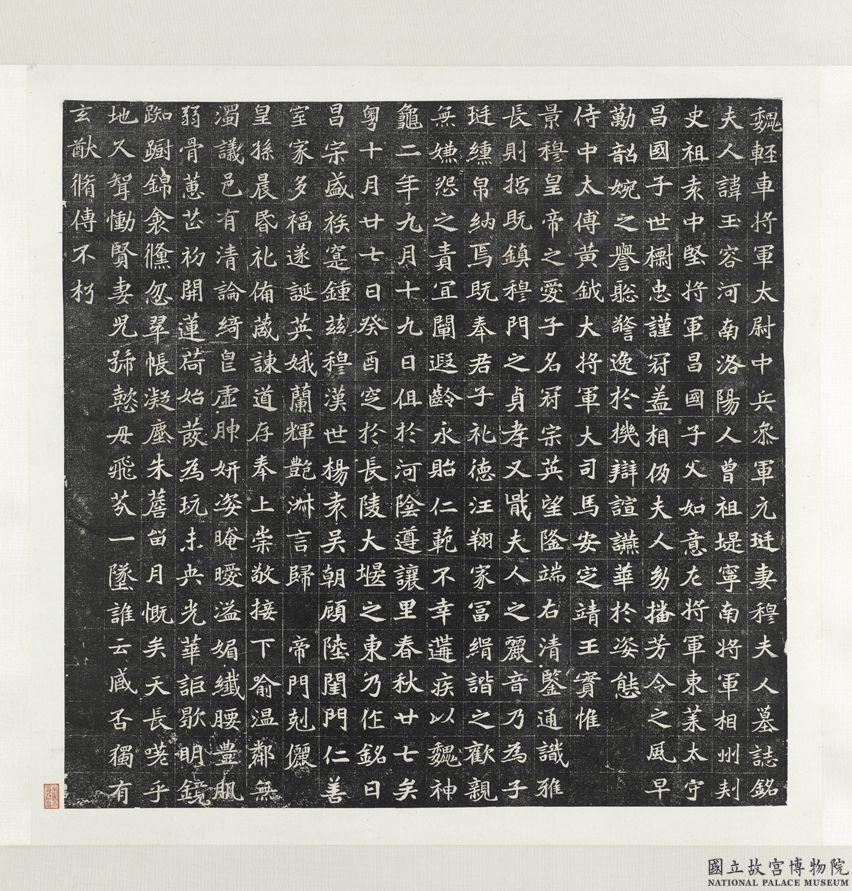 魏輕車將軍太尉中兵叅軍元珽妻穆夫人墓誌銘
夫人諱玉容河南洛陽人曾祖堤寧南將軍相州刾
史祖袁中堅將軍昌國子父如意左將軍東萊太守
昌國子世櫚忠謹冠盖相仍夫人幼播芳令之風早
勤韶婉之譽聡警逸於機辯諠讌華於姿態
侍中太傅黃鉞大將軍大司馬安定靖王實惟
景穆皇帝之愛子名冠宗英望隆端右清鑒通識雅
長則哲既鎮穆門之貞孝又戢夫人之麗音乃為子
珽纁帛納焉既奉君子礼德汪翔家冨緝諧之歡親
無嫌怨之責冝闡遐齡永貽仁範不幸遘疾以魏神
龜二年九月十九日俎於河陰遵讓里春秋廿七矣
粵十月廿七日癸酉窆於長陵大堰之東乃作銘曰
昌宗盛族寔鍾茲穆漢世楊袁吴朝顧陸閨門仁善
室家多福遂誕英娥蘭輝艷淋言歸 帝門剋儷
皇孫晨昏礼俻葴諫道存奉上崇敬接下俞温鄰無
濁議邑有清論綺皃虛腴妍姿晻曖溢媚纖腰豊肌
弱骨蕙芷初開蓮荷始蕟為玩未央光華詎歇明鏡
踟蹰錦衾儵忽翠帳凝塵朱簷畄月慨矣天長嗟乎
地久眢慟賢妻児號懿毋飛芬一墜誰云臧否獨有
玄猷脩傳不朽
國立故宫博物院
NATIONAL PALACE MUSEUM